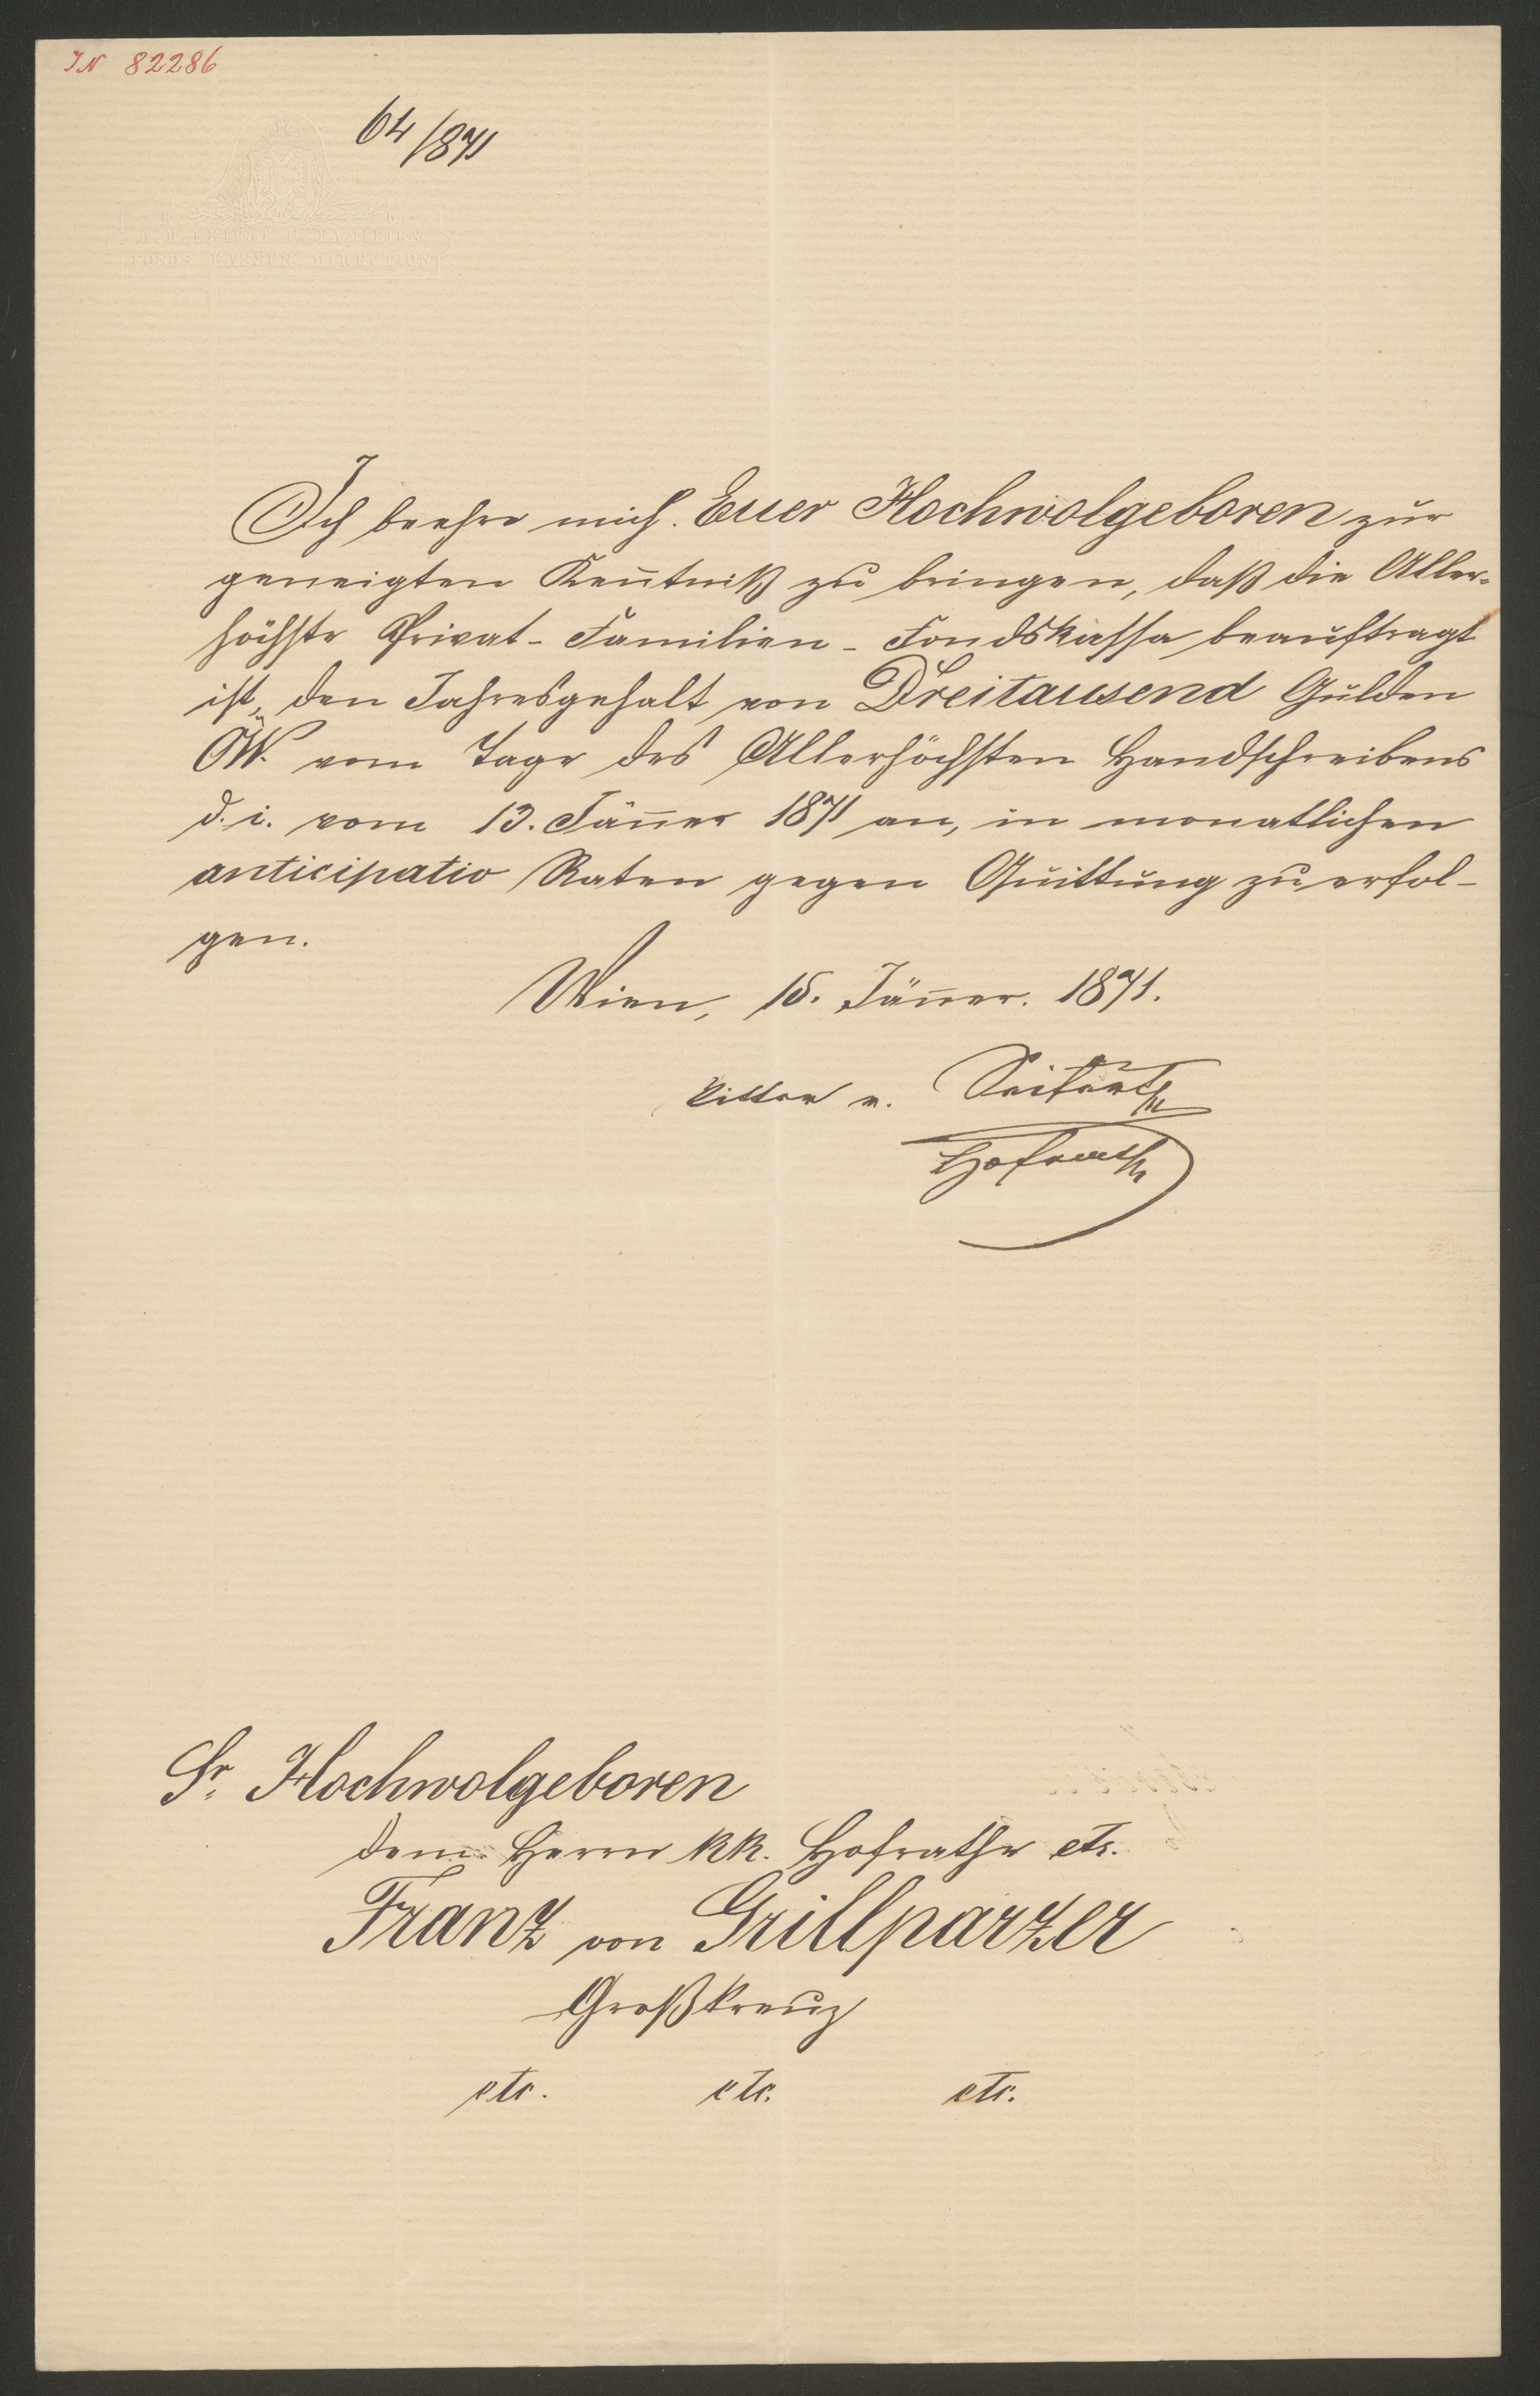 IN 82286
64/871
K. K.
A. H. PRIVAT U. FAMILIEN
FONDS KASSEN DIRECTION
Ich beehre mich. Euer Hochwolgeboren zur
geneigten Kenntniß zu bringen, daß die Aller-
höchste Privat- Familien- Fondskassa beauftragt
ist, den Jahresgehalt von Dreitausend Gulden
ÖW. vom Tage des Allerhöchsten Handschreibens
d. i. vom 13. Jänner 1871 an, in monatlichen
anticipatio Raten gegen Quittung zu erfol-
gen.
Wien, 15. Jänner. 1871.
Ritter v.
Hofrath
Sr. Hochwolgeboren
dem Herrn kk. Hofrathe etc.
Franz von Grillparzer
Großkreuz
etc. etc. etc.